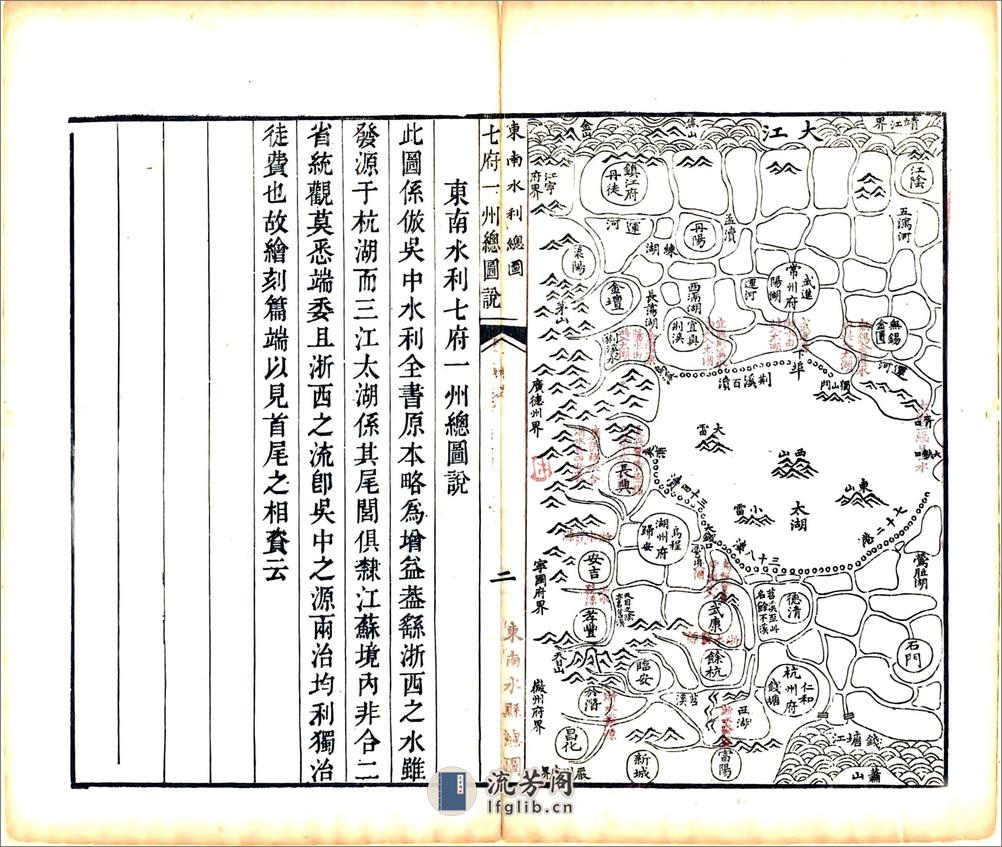 大江
靖江界
江陰
五瀉河
焦山
金山
江寧府界
鎮江府
丹徒
運河
丹陽
練湖
孟瀆
常州府
武進
陽湖
運河
無錫
金匱
運河
溧陽
金壇
長蕩湖
西滆湖
宜興
荊溪
茅山
荊溪百瀆
下埠
獨山門
廣德州界
大雷
西山
東山
小雷
太湖
七十二港
長興
三十四漊
三十八漊
大錢口
烏程
湖州府
歸安
鶯脰湖
安吉
孝豐
寧國府界
德清
苕溪至此名餘不溪
武康
餘杭
石門
天目山
臨安
苕溪
於潛
徽州府界
杭州府
仁和
錢塘
西湖
錢塘江
蕭山
昌化
新城
富陽
嚴
界
東南水利總圖
七府一州總圖說
二
東南水利七府一州總圖說
此圖係倣吳中水利全書原本略爲增益葢繇浙西之水雖
發源于杭湖而三江太湖係其尾閭俱隸江蘇境內非合二
省統觀莫悉端委且浙西之流卽吳中之源兩治均利獨治
徒費也故繪刻篇端以見首尾之相賚云
流芳阁
lfglib.cn